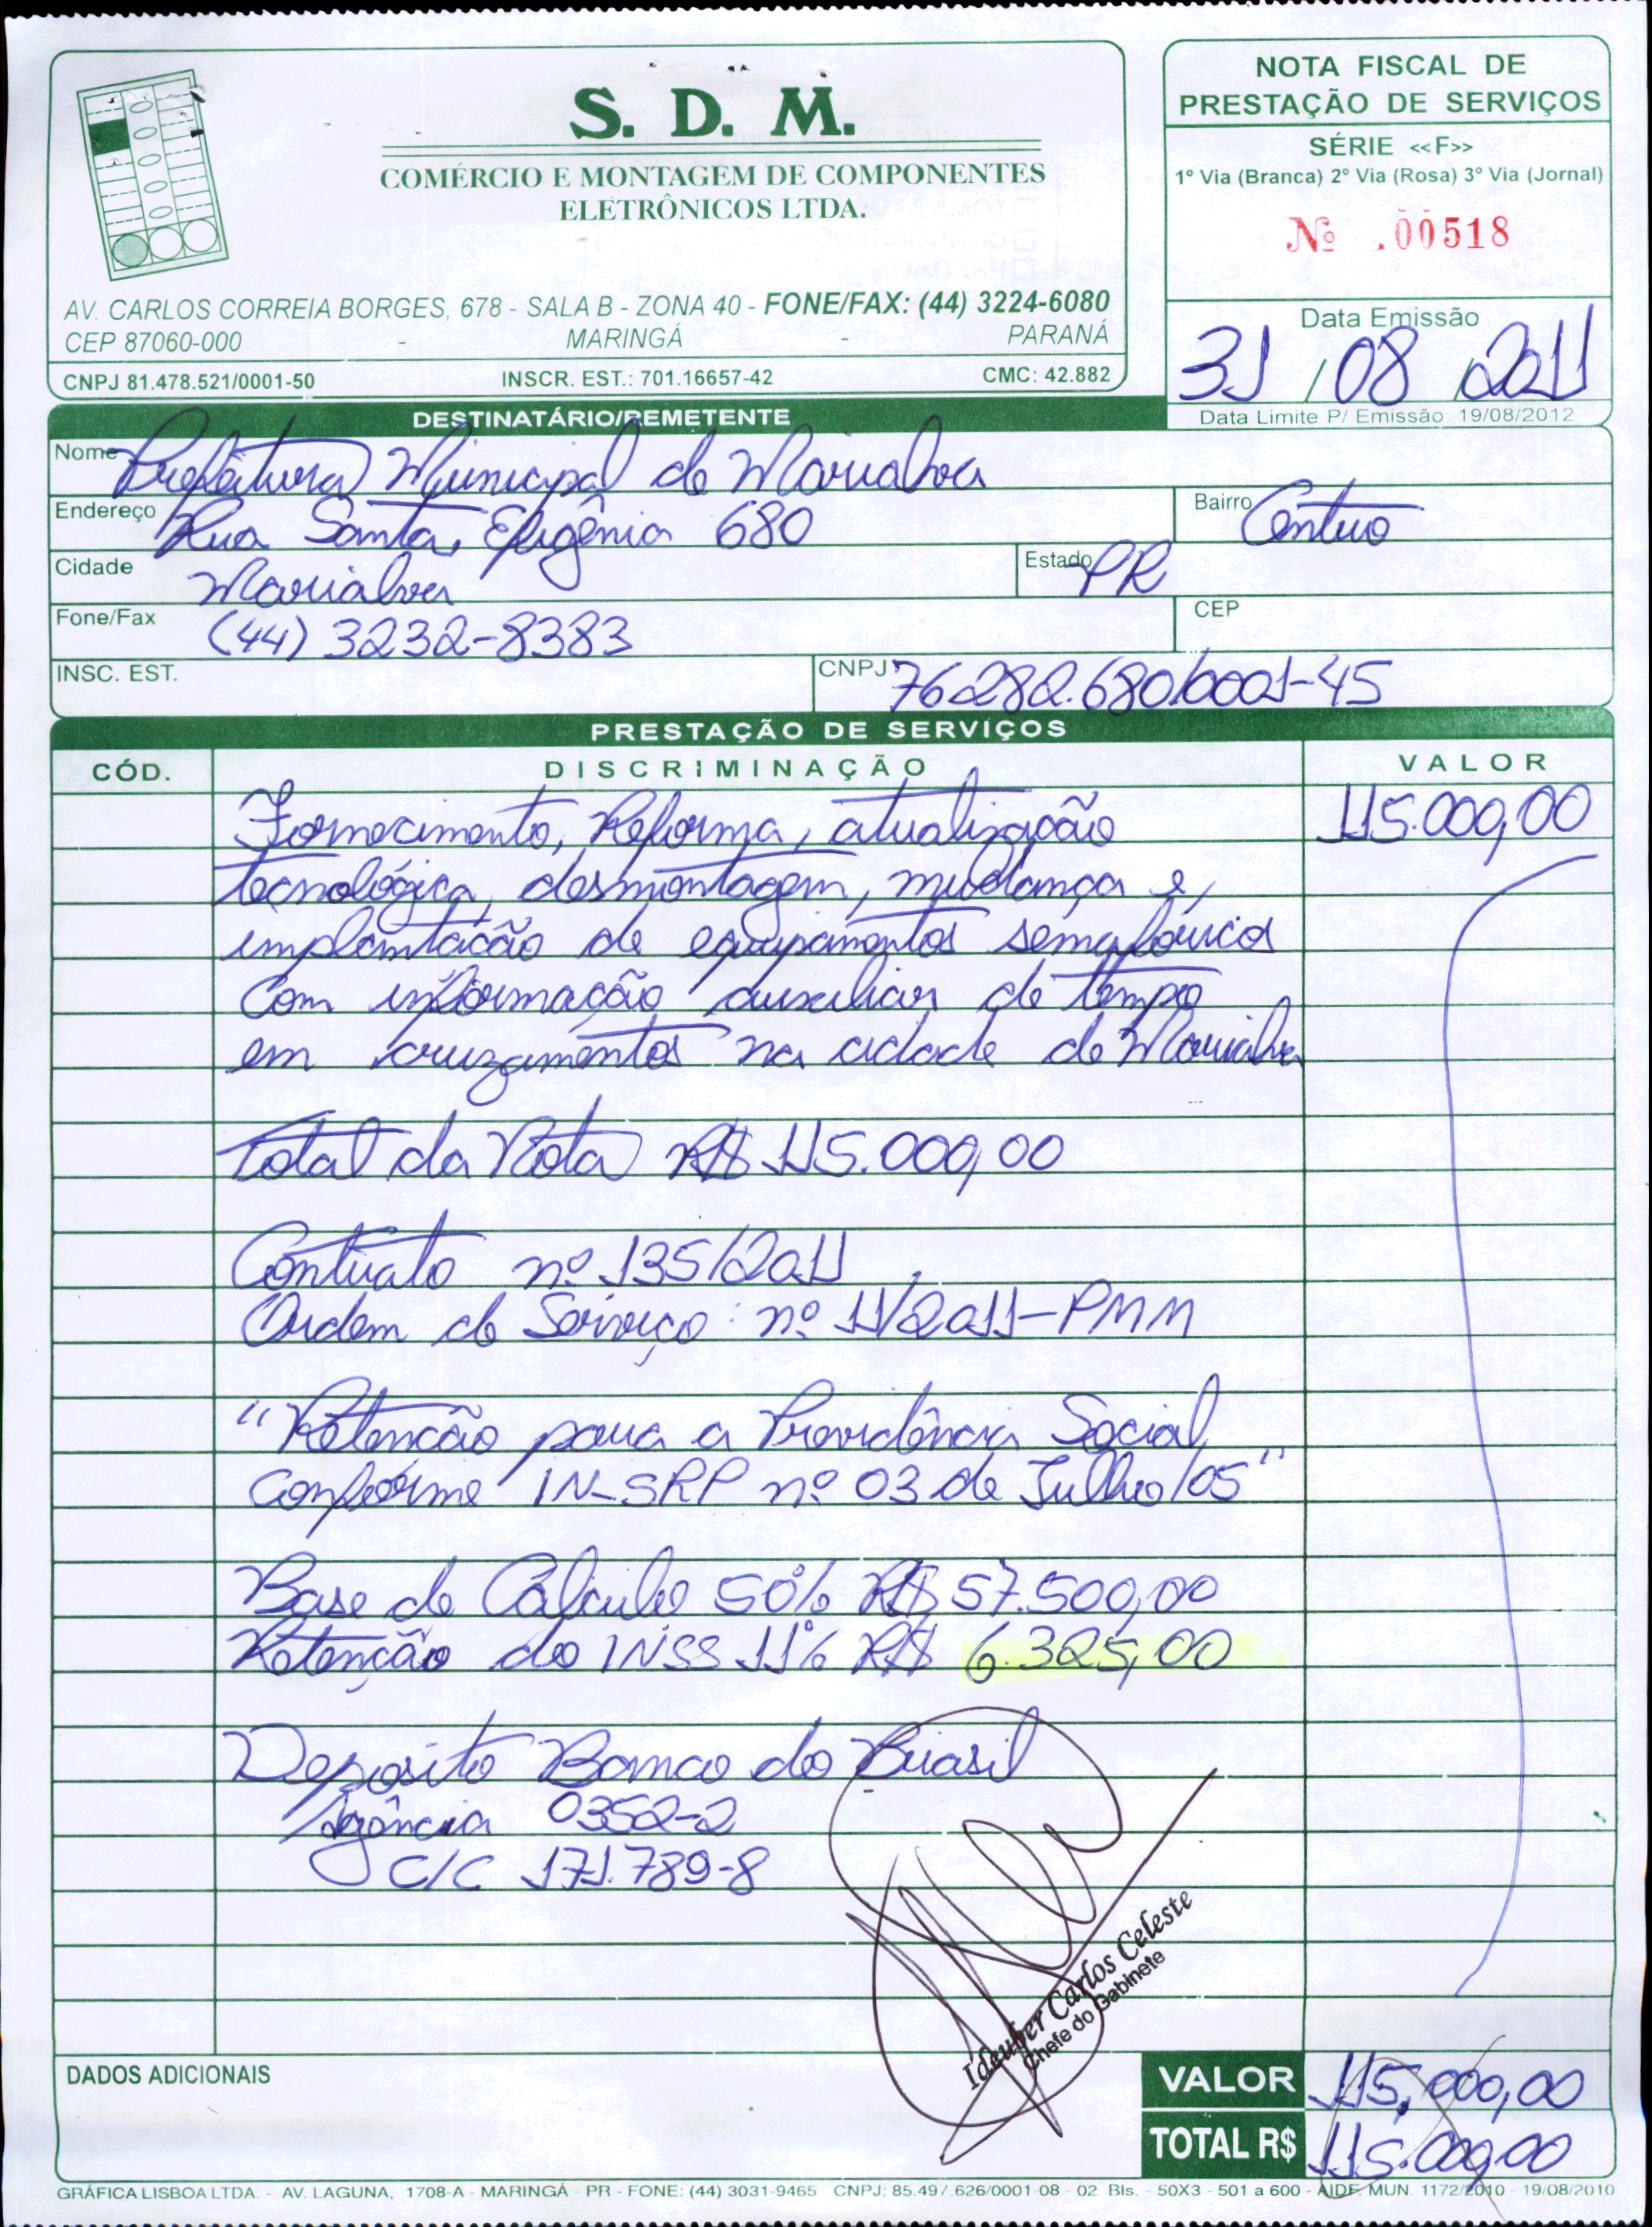 S. D. M.
COMÉRCIO E MONTAGEM DE COMPONENTES
ELETRÔNICOS LTDA.
AV. CARLOS CORREIA BORGES, 678 - SALA B - ZONA 40 - FONE/FAX: (44) 3224-6080
CEP 87060-000 - MARINGÁ - PARANÁ
CNPJ 81.478.521/0001-50 INSCR. EST.: 701.16657-42 CMC: 42.882
NOTA FISCAL DE
PRESTAÇÃO DE SERVIÇOS
SÉRIE «F»
1º Via (Branca) 2º Via (Rosa) 3º Via (Jornal)
Nº .00518
Data Emissão
31/08/2011
Data Limite P/ Emissão 19/08/2012
DESTINATÁRIO/REMETENTE
Nome Prefeitura Municipal de Marialva
Endereço Rua Santa Efigênia 680 Bairro Centro
Cidade Marialva Estado PR
Fone/Fax (44) 3232-8383 CEP
INSC. EST. CNPJ 76282.680/0001-45
PRESTAÇÃO DE SERVIÇOS
CÓD. DISCRIMINAÇÃO VALOR
Fornecimento, Reforma, atualização 115.000,00
tecnológica, desmontagem, mudança e,
implantação de equipamentos semafóricos
com informação auxiliar de tempo
em cruzamentos na cidade de Marialva
Total da Nota R$ 115.000,00
Contrato nº 135/2011
Ordem de Serviço: nº 11/2011-PMM
"Retenção para a Previdência Social
Conforme IN-SRP nº 03 de Julho/05"
Base de Cálculo 50% R$ 57.500,00
Retenção do INSS 11% R$ 6.325,00
Deposito Banco do Brasil
Agência 0352-2
C/C 171.789-8
Carlos Celeste
Chefe do Gabinete
DADOS ADICIONAIS
VALOR 115,000,00
TOTAL R$ 115.000,00
GRÁFICA LISBOA LTDA. - AV. LAGUNA, 1708-A - MARINGÁ - PR - FONE: (44) 3031-9465 CNPJ: 85.497.626/0001-08 - 02 Bls. - 50X3 - 501 a 600 - AIDF. MUN. 1172/2010 - 19/08/2010